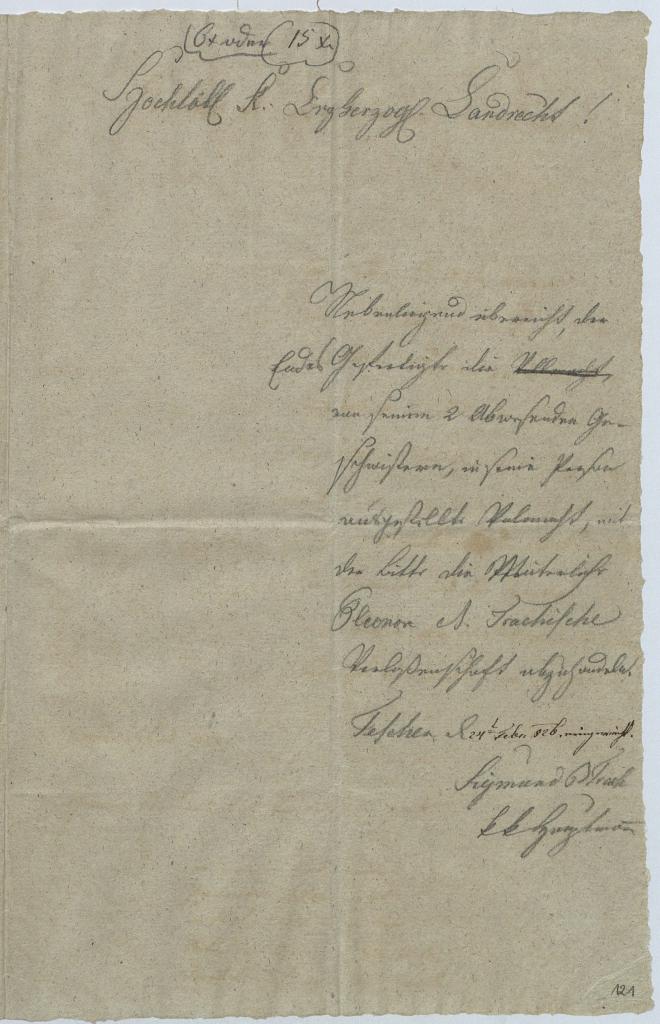 6x oder 15 x.
Hochlöbl K: Erzherzogl. Landrecht!
Nebenliegend überreicht, der
Endes Gefertigte die Vollmacht,
von seinen 2 Abwesenden Ge-
schwistern, in seine Person
ausgestellte Volmacht, mit
der bitte die Mütterliche
Eleonor N. Trachische
Verlaßenschaft abzuhandeln.
Teschen d 24t Febr. 826. eingereicht.
Sigmund Trach
kk Hauptmann
121